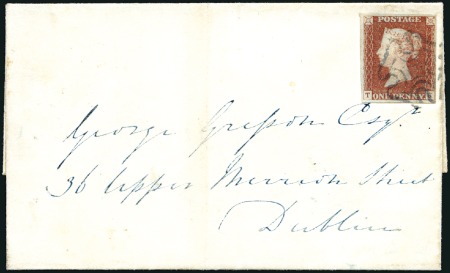 POSTAGE
ONE PENNY
George Esqr
36 Upper Merrion Street
Dublin